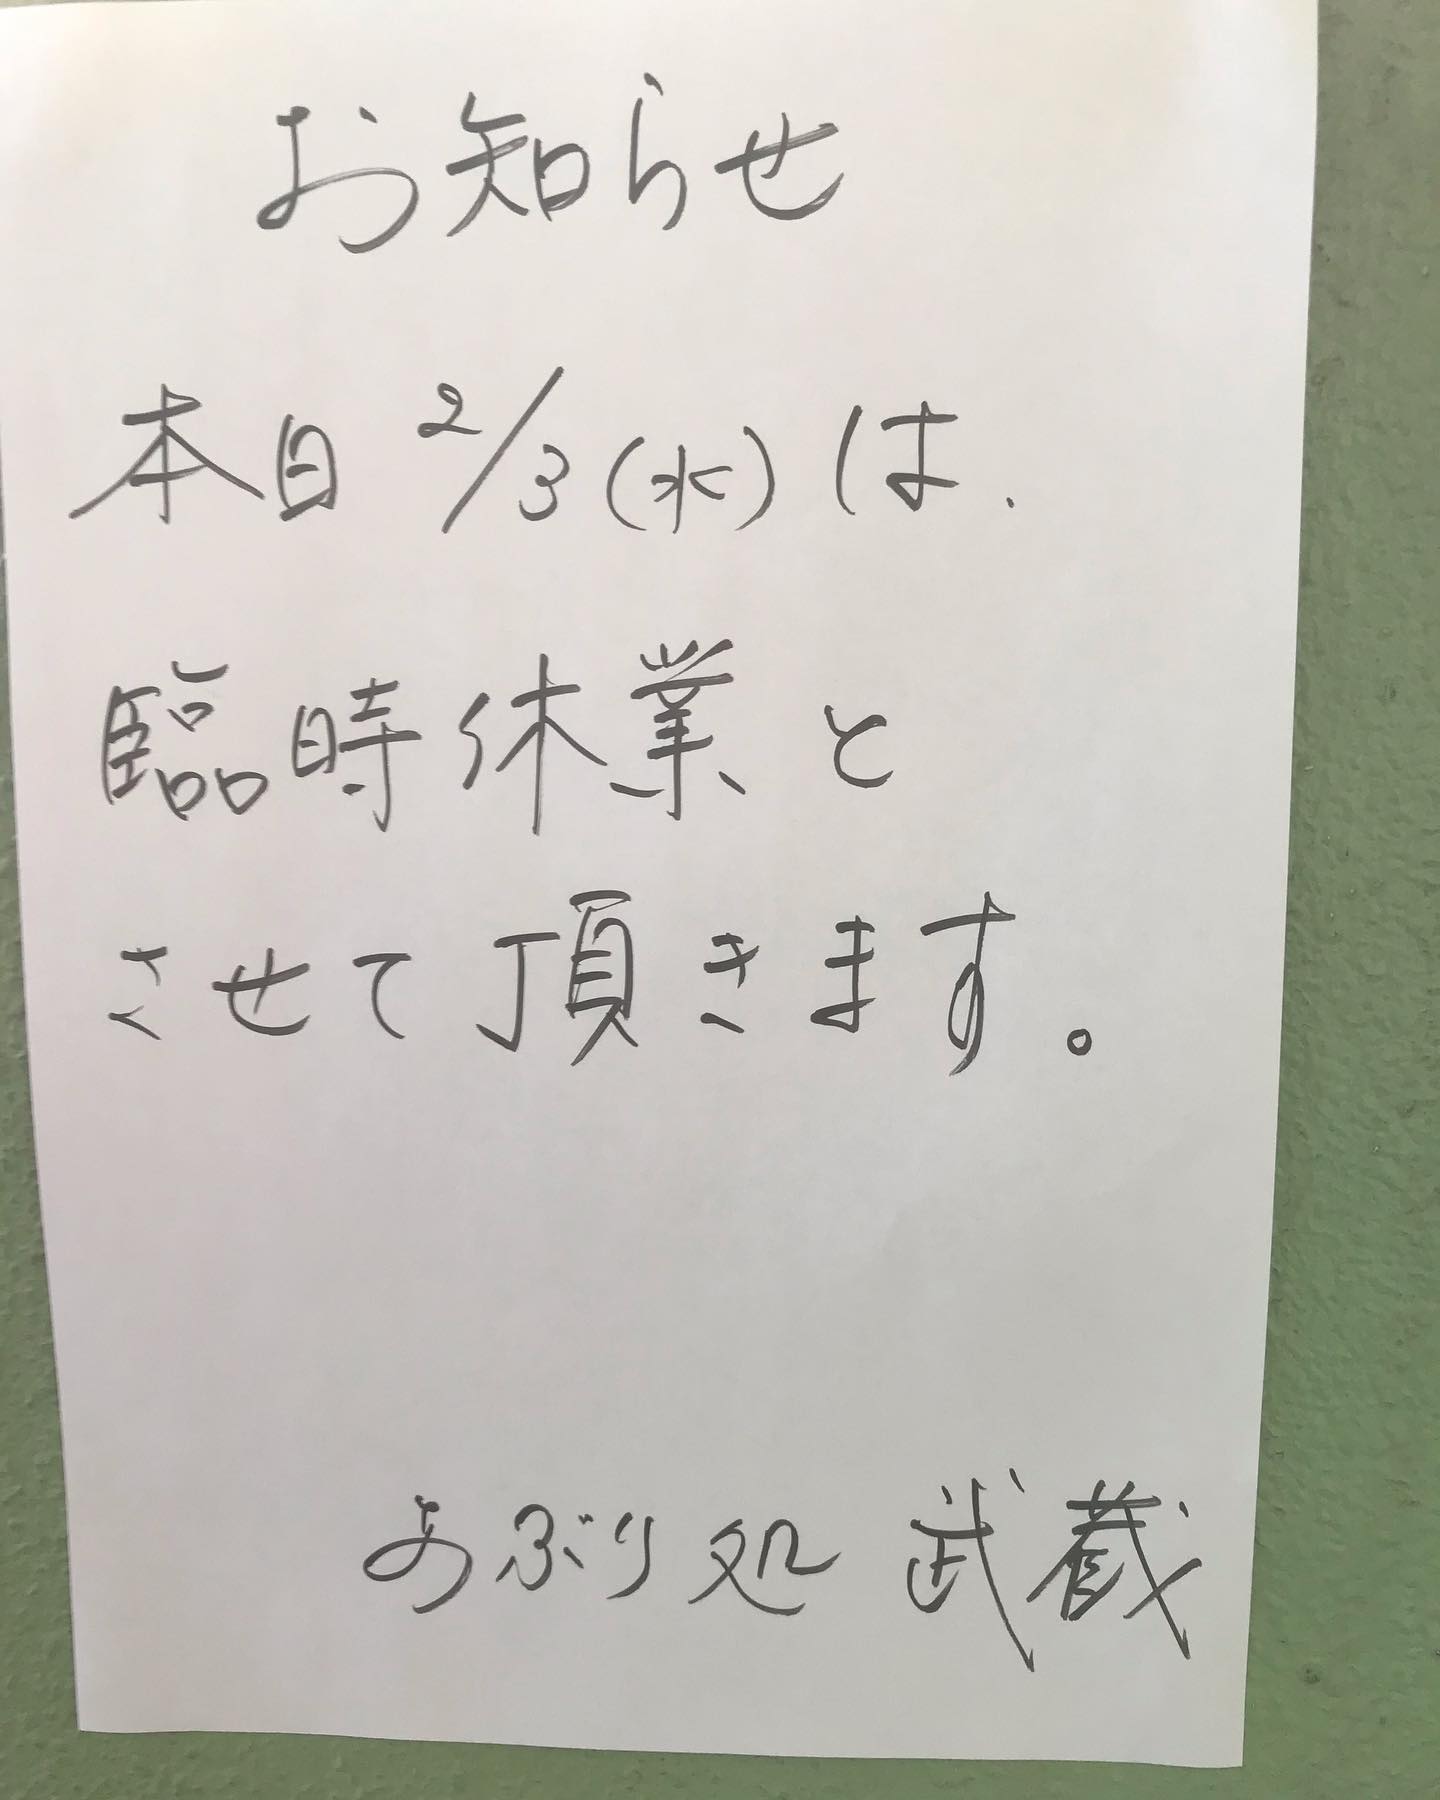 お知らせ
本日 2/3(水)は、
臨時休業と
させて頂きます。
あぶり処 武蔵